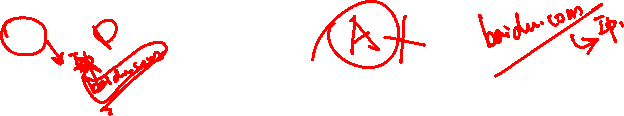 Ip
baidu.com
A
baidu.com
Ip.